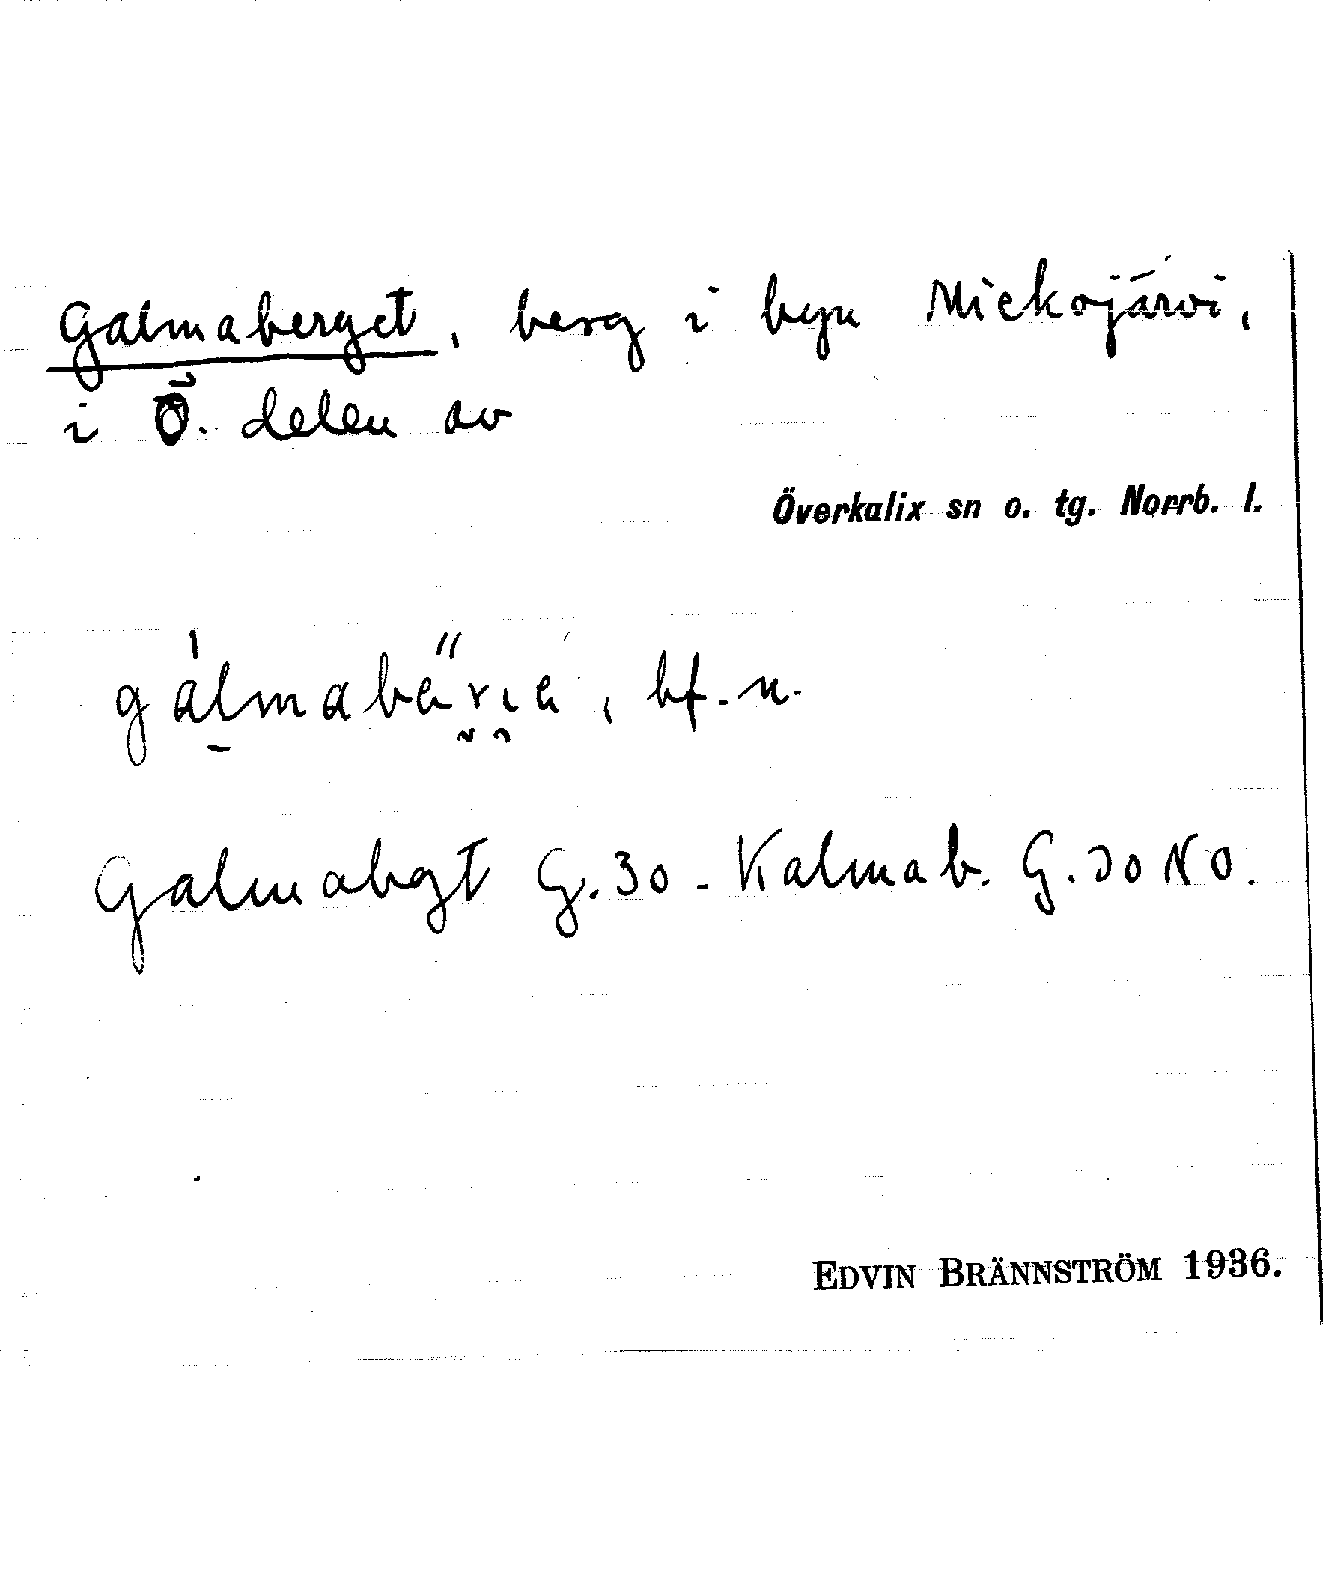 Galmaberget, berg i byn Mickojärvi,
i Ö. delen av
Överkalix sn o. tg. Norrb. l.
bf. n.
Galmabgt G. 30 - Kalmab. G. 30 NO.
EDVIN BRÄNNSTRÖM 1936.